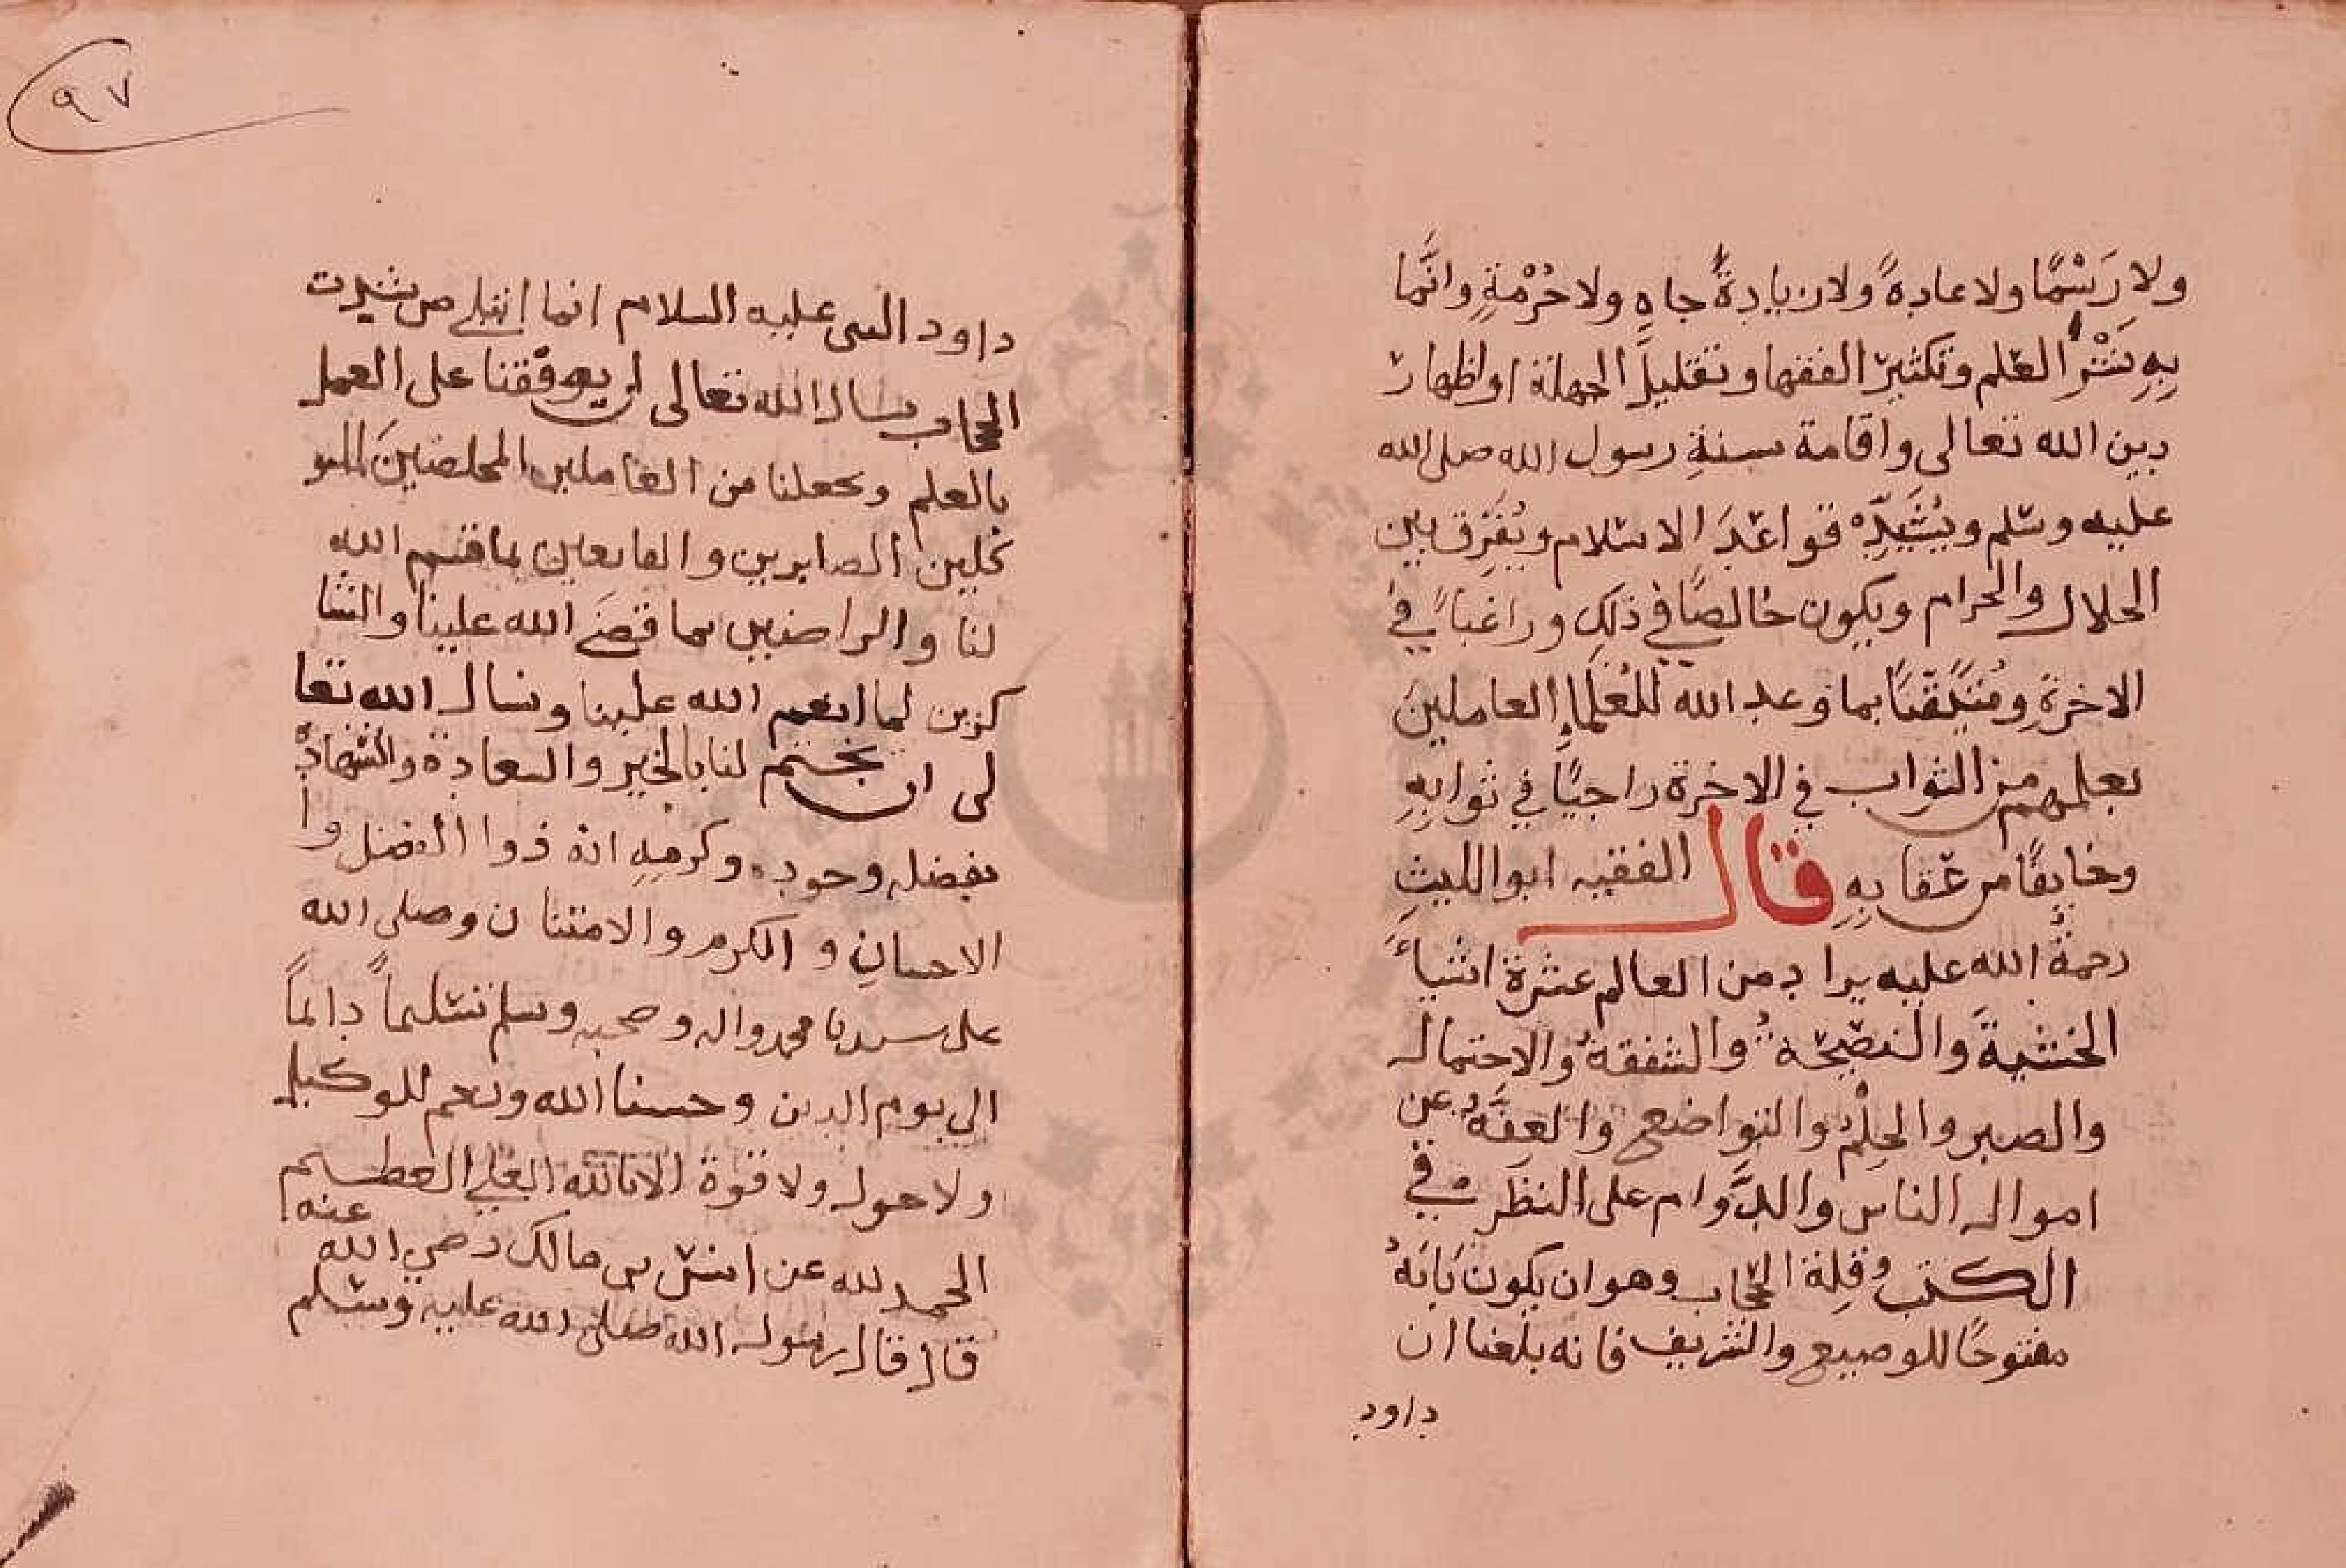 ولا رَسْمًا ولا عادةً ولا زيادةُ جاهٍ ولا حُرْمَةٍ وانَّما
بِهِ نَشْرُ العلم وتكثير الفقها وتقليل الجهلة او اظهار
دين الله تعالى واقامة سنةِ رسول الله صلى الله
عليه وسلم ويُشَيِّدُ قواعدَ الاسلام ويُفرِّق بين
الحلال والحرام ويكون خالصًا في ذلك وراغبًا في
الاخرةِ ومُتَيَقِّنًا بما وعد الله للعُلَماءِ العاملين
بعلمهم من الثواب في الاخرة راجيًا في ثوابِهِ
وخايفًا من عقابِهِ قال الفقيه ابو الليثِ
رحمةُ الله عليه يراد من العالم عشرة اشياءَ
الخشيةَ والنصيحة والشفقةُ والاحتمال
والصبر والحِلْمُ والتواضع والعِفَّةُ عن
اموال الناس والدَّوام على النظَر في
الكتب وقِلة الحجاب وهو ان يكون بَابَهُ
مفتوحًا للوضيع والشريف فانه بلغنا ان
داود
٩٧
داود النبى عليه السلام انما ابتلى من شدت
الحجاب نسال الله تعالى ان يوفّقنا على العمل
بالعلم ويجعلنا من العاملين المخلصينَ المتو
كلين الصابرين والقانعين بما قسم الله
لنا والراضيين بما قضى الله علينا والشا
كرين لما انعم الله علينا ونسال الله تعا
لى ان يختم لنا بالخير والسعادة والشهادة
بفضله وجوده وكرمِهِ انه ذوا الفضل وا
الاحسانِ و الكرم والامتنان وصلى الله
على سيدنا محمد واله وصحبه وسلم تسليماً دائماً
الى يوم الدين وحسبنا الله ونعم للوكيل
ولا حول ولا قوة الا بالله العلي العظيم
الحمد لله عن انس بن مالك رضي الله عنه
قال قال رسول الله صلى الله عليه وسلم